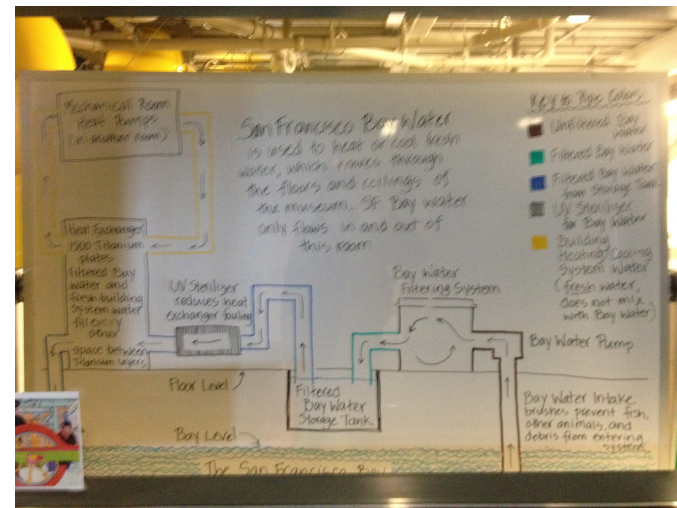 Mechanical Room
Heat Pumps
(in another room)
San Francisco Bay Water
is used to heat or cool fresh
water, which moves through
the floors and ceilings of
the museum. SF Bay water
only flows in and out of
this room
Key to Pipe Colors:
Unfiltered Bay
Water
Filtered Bay Water
Filtered Bay Water
from Storage Tank
UV Steriliser
for Bay Water
Building
Heating/Cooling
System Water
(fresh water,
does not mix
with Bay Water)
Heat Exchanger
1500 Titanium
plates
Filtered Bay
water and
fresh building
system water
fill every
other
space between
Titanium layers
UV Steriliser
reduces heat
exchanger fouling
Bay Water
Filtering System
Bay Water Pump
Floor Level
Filtered
Bay Water
Storage Tank
Bay Water Intake
brushes prevent fish,
other animals, and
debris from entering
system.
Bay Level
The San Francisco Bay